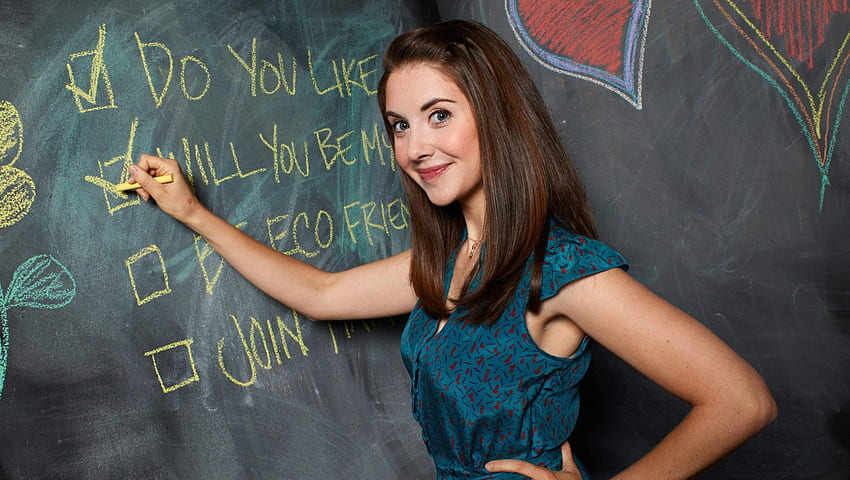 DO YOU LIKE
WILL YOU BE MY
BE ECO FRIEN
JOIN